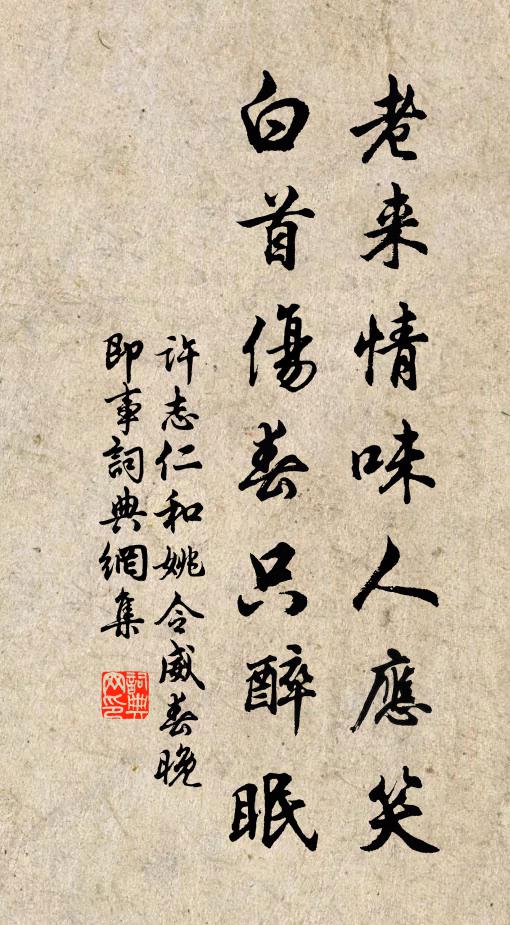 老来情味人應笑
白首傷春只醉眠
许志仁和姚令威春晚
即事詞典網集
詞典网印